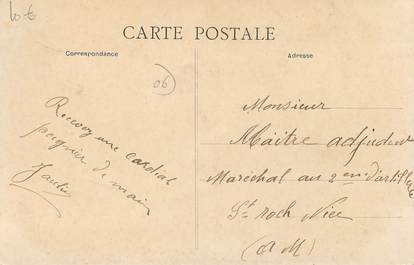 10-€
CARTE POSTALE
Correspondance
Adresse
06
Recevez une cordial
poignée de main
Monsieur
Maître adjudant
Maréchal au 2eme d'artillerie
St roch Nice
(A M)